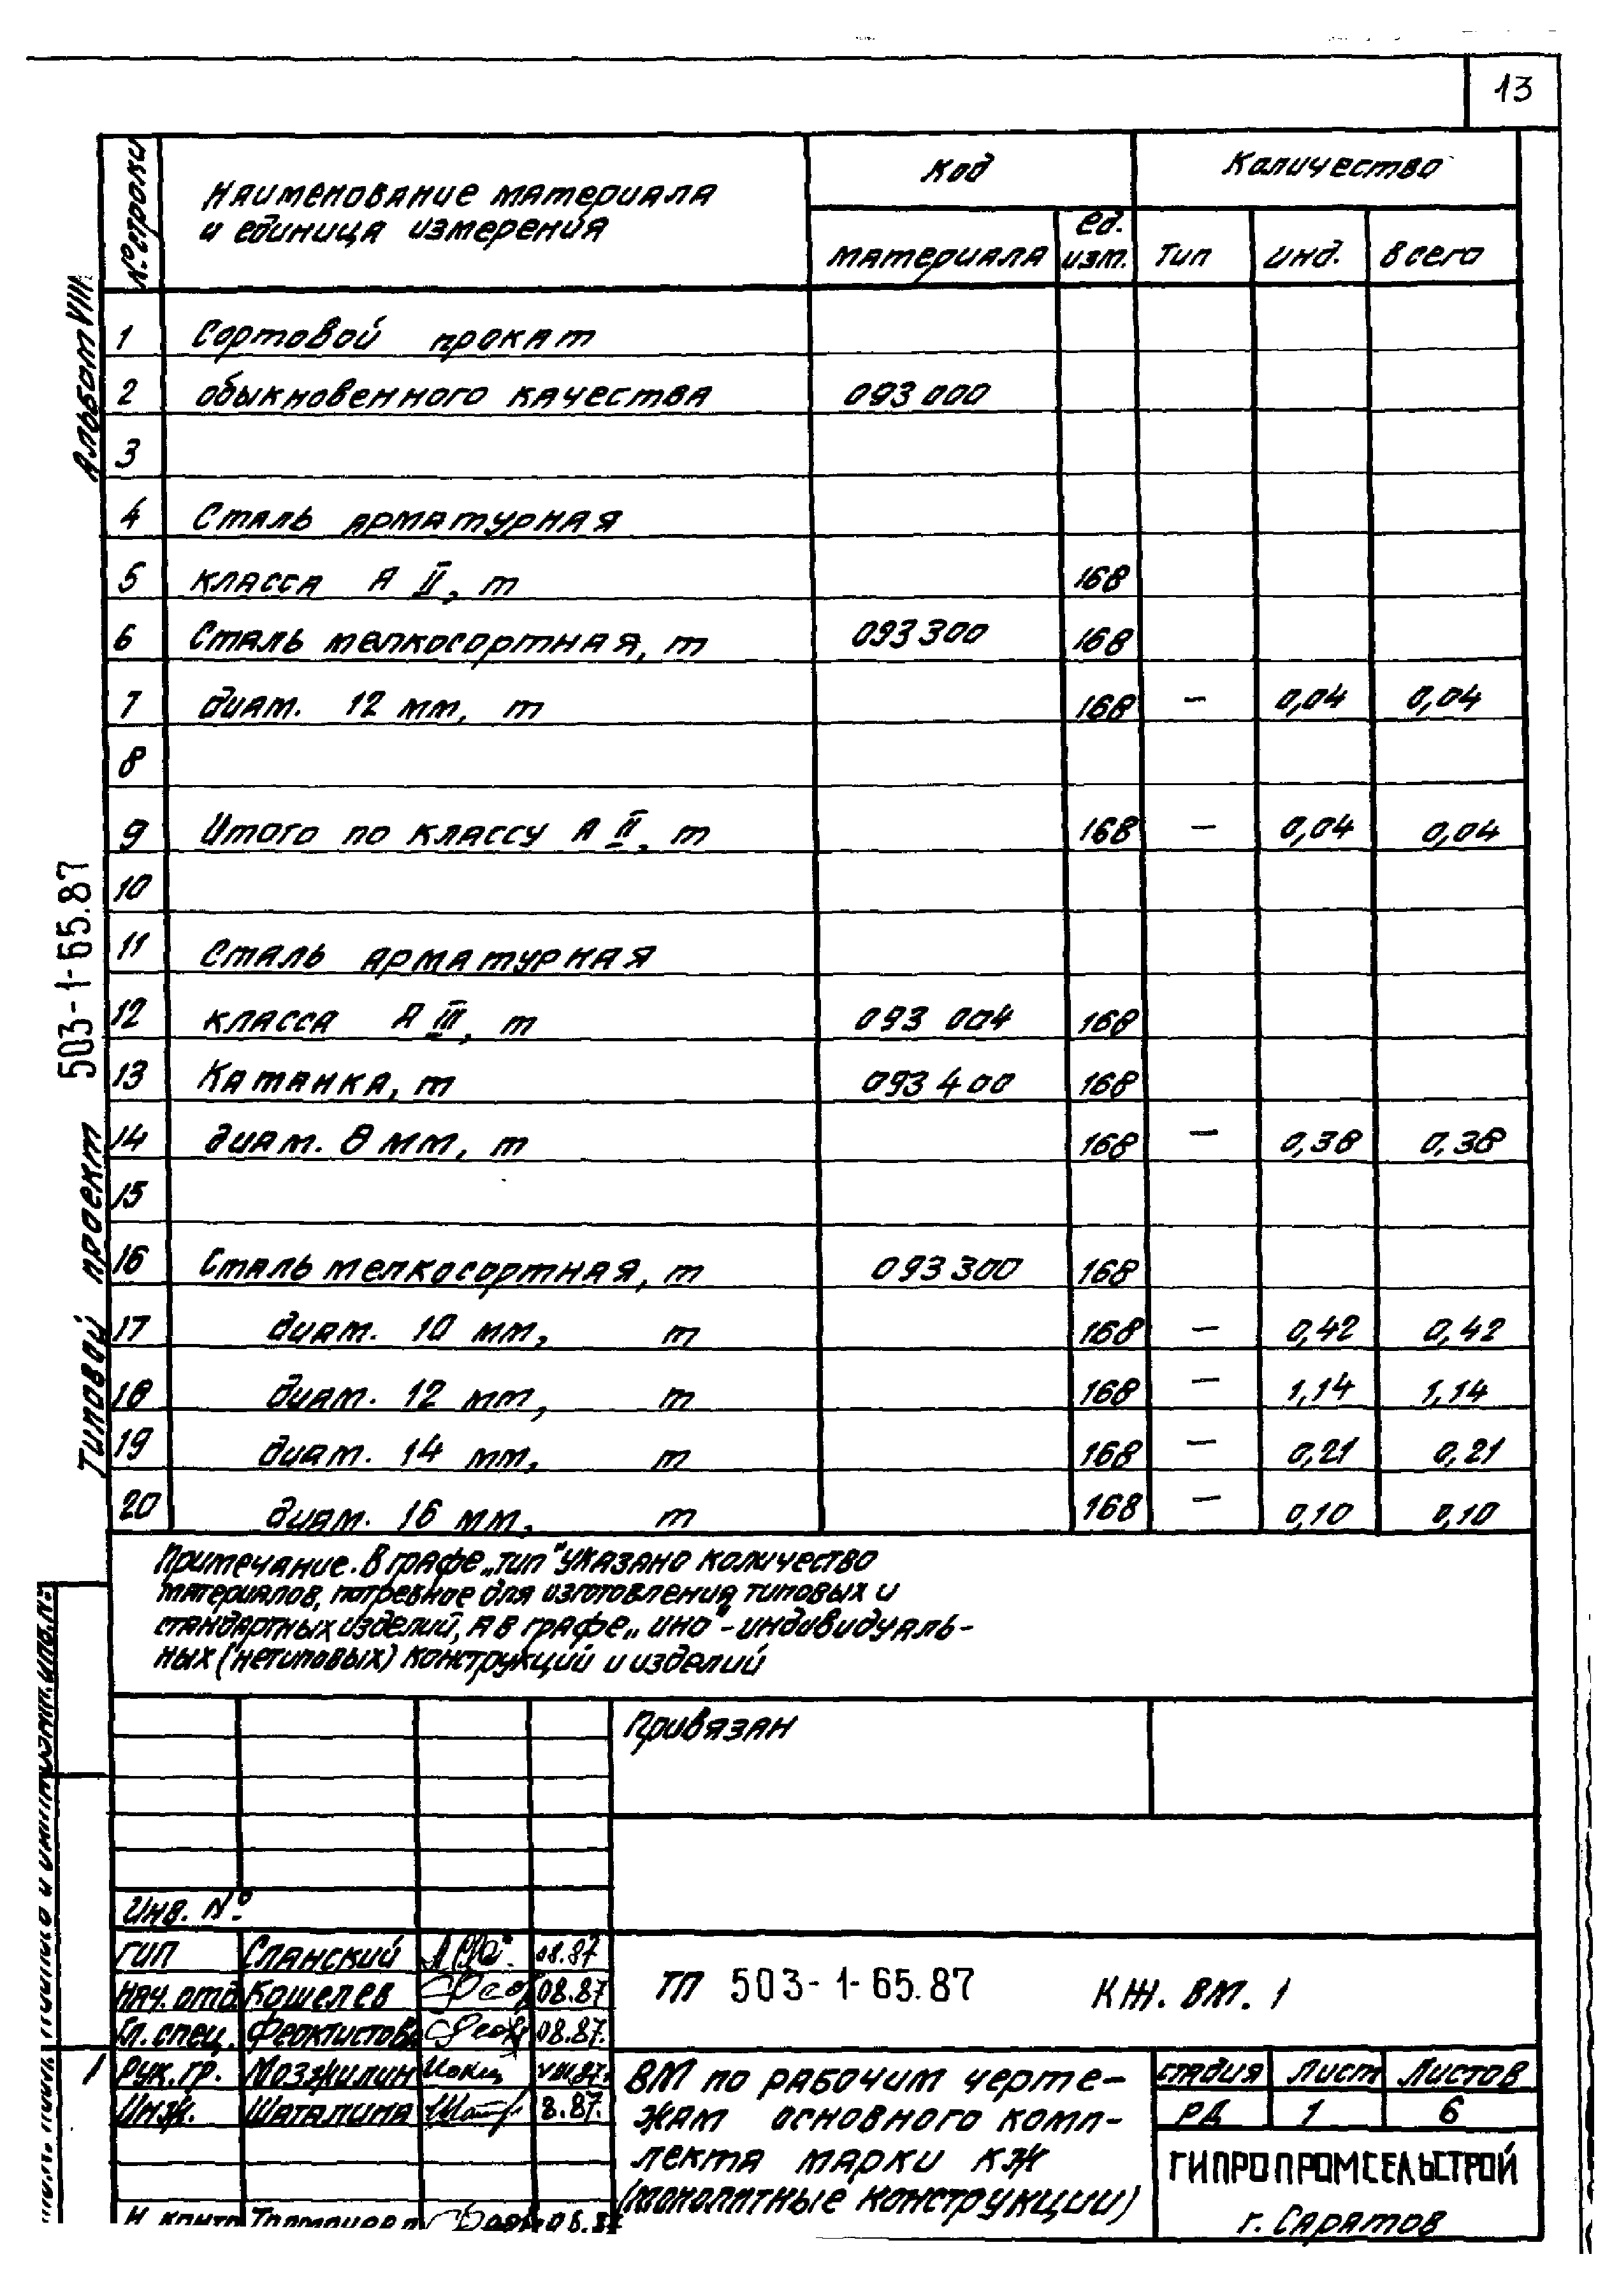 13
№ строки
Наименование материала
и единица измерения
Код
Количество
материала
ед.
изм.
Тип
инд.
всего
1 Сортовой прокат
2 обыкновенного качества 093000
3
4 Сталь арматурная
5 класса А II, т 168
6 Сталь мелкосортная, т 093300 168
7 диам. 12 мм, т 168 – 0,04 0,04
8
9 Итого по классу А II, т 168 – 0,04 0,04
10
11 Сталь арматурная
12 класса А III, т 093 004 168
13 Катанка, т 093400 168
14 диам. 8 мм, т 168 – 0,38 0,38
15
16 Сталь мелкосортная, т 093300 168
17 диам. 10 мм, т 168 – 0,42 0,42
18 диам. 12 мм, т 168 – 1,14 1,14
19 диам. 14 мм, т 168 – 0,21 0,21
20 диам. 16 мм, т 168 – 0,10 0,10
Альбом VIII
Типовой проект 503-1-65.87
Примечание. В графе „тип" указано количество
материалов, потребное для изготовления типовых и
стандартных изделий, а в графе „инд" - индивидуаль-
ных (нетиповых) конструкций и изделий
Привязан
Инв. №
ГИП Сланский 08.87
Нач. отд. Кошелев 08.87
Гл. спец. Феоктистова 08.87.
Рук. гр. Мозжилин VIII.87.
Инж. Шаталина 8.87.
Н. контр 08.87
ТП 503-1-65.87 КЖ. ВМ. 1
ВМ по рабочим черте-
жам основного комп-
лекта марки КЖ
(монолитные конструкции)
стадия Лист Листов
РД 1 6
ГИПРОПРОМСЕЛЬСТРОЙ
г. Саратов